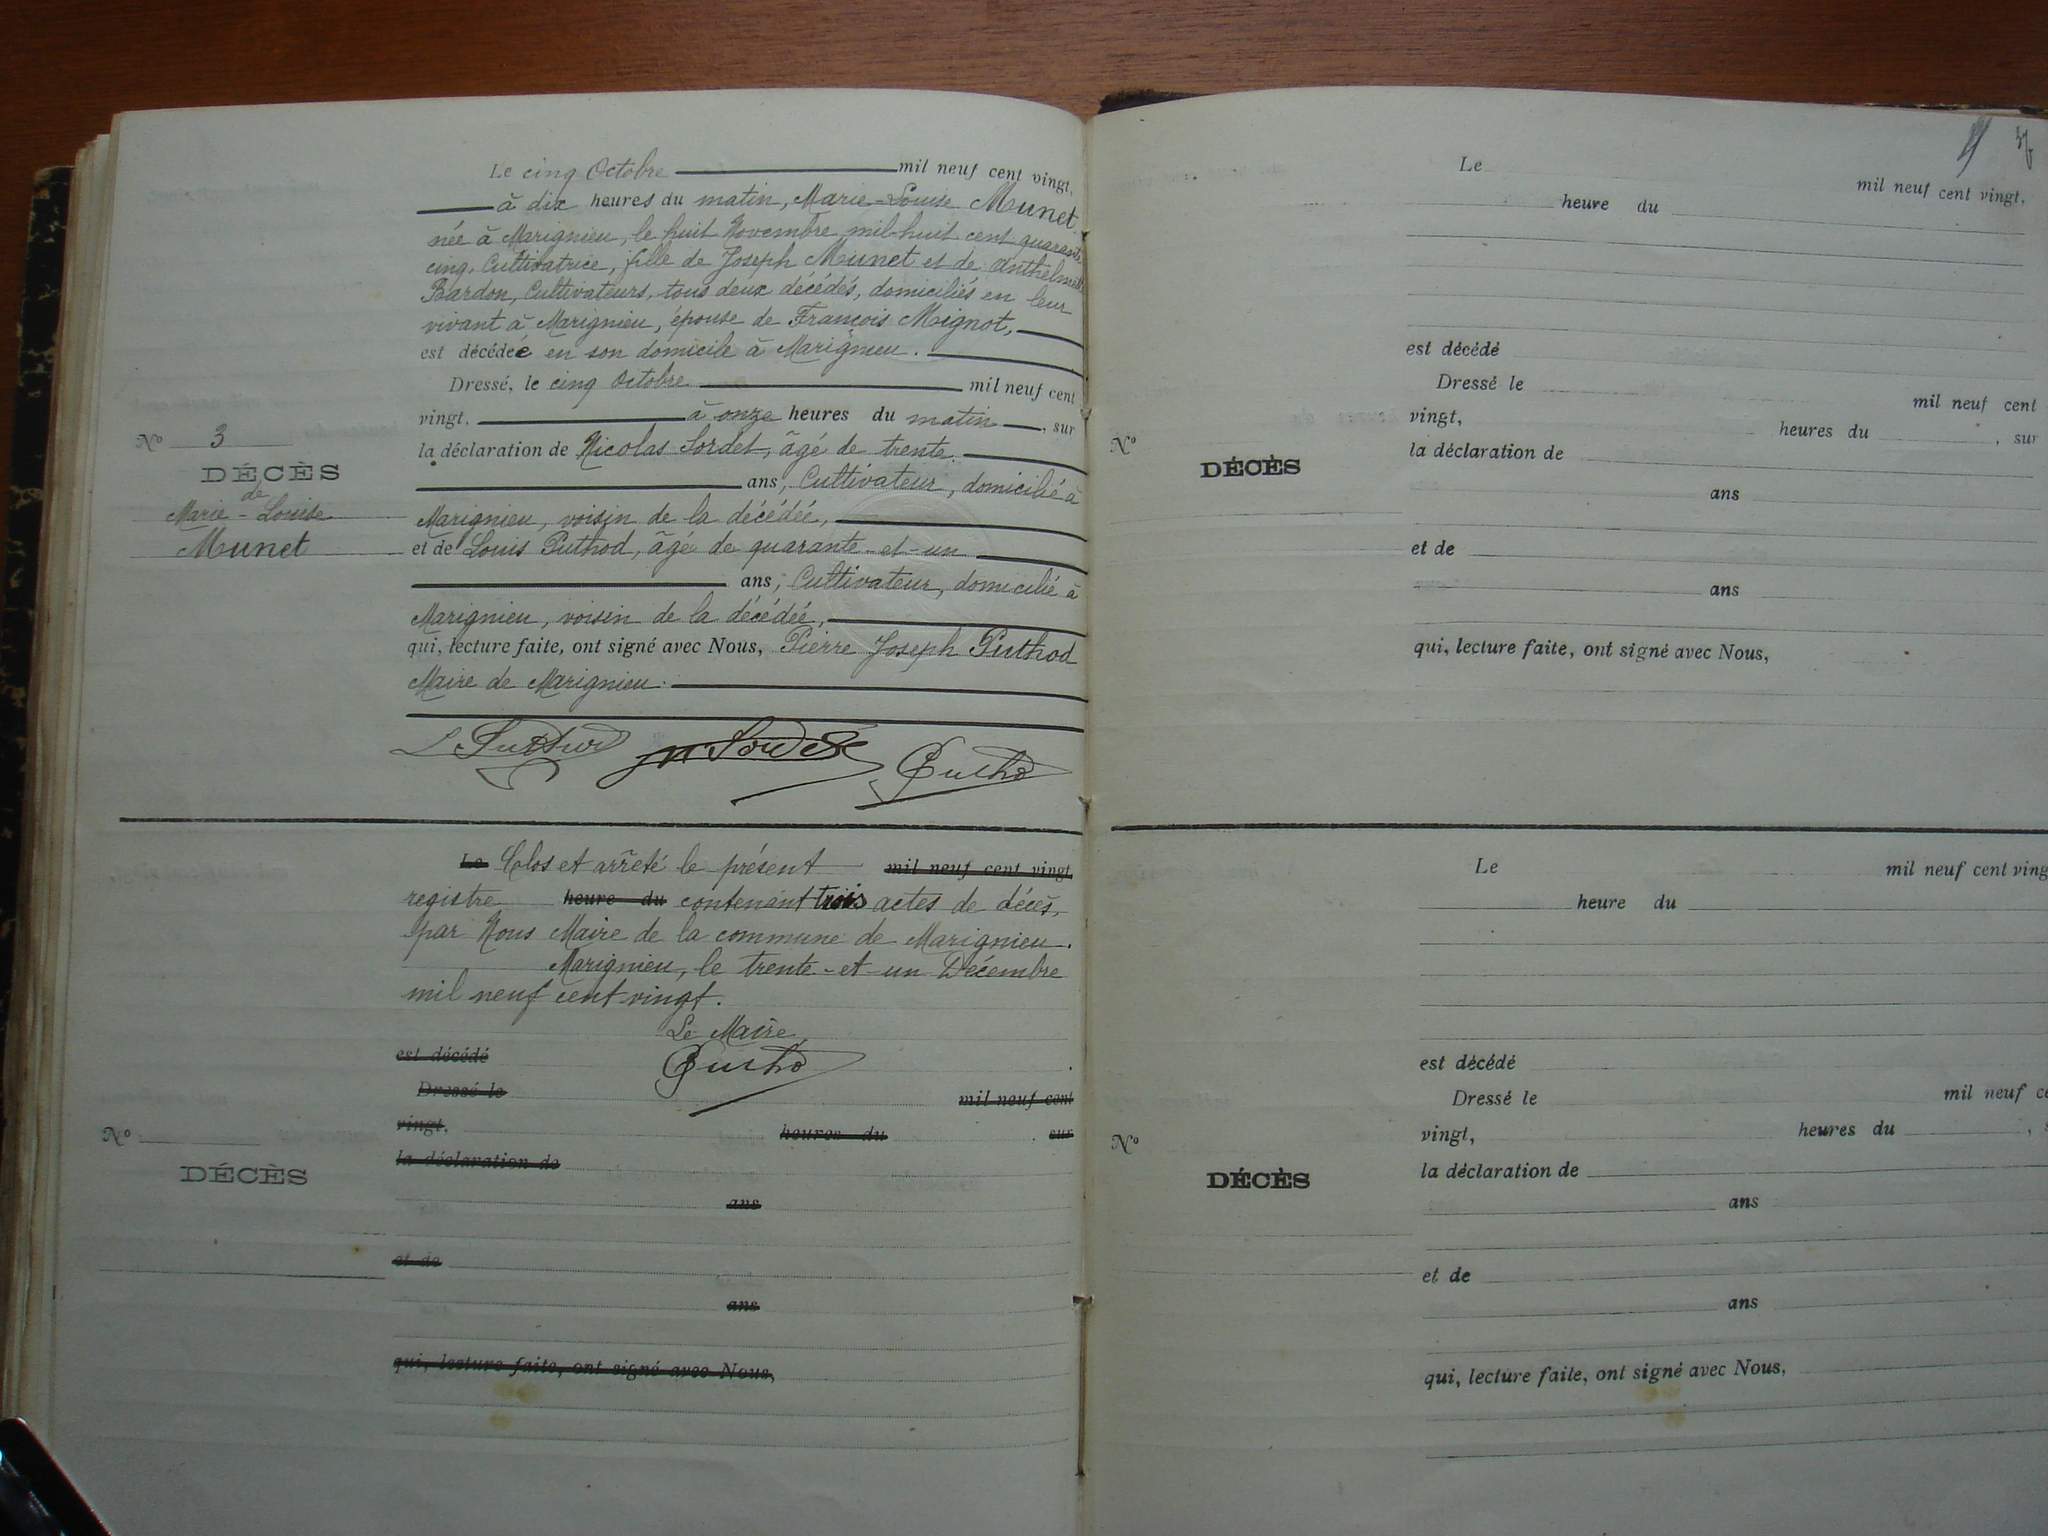 Le cinq Octobre mil neuf cent vingt,
à dix heures du matin, Marie-Louise Munet
née à Marignieu, le huit Novembre mil-huit cent quarante
cinq, Cultivatrice, fille de Joseph Munet et de Anthelmette
Bardon, Cultivateurs, tous deux décédés, domiciliés en leur
vivant à Marignieu, épouse de François Mignot,
est décédée en son domicile à Marignieu.
Dressé, le cinq Octobre mil neuf cent
vingt, à onze heures du matin, sur
la déclaration de Nicolas Sordet, âgé de trente
ans, Cultivateur, domicilié à
Marignieu, voisin de la décédée,
et de Louis Puthod, âgé de quarante-et-un
ans, Cultivateur, domicilié à
Marignieu, voisin de la décédée,
qui, lecture faite, ont signé avec Nous, Pierre Joseph Puthod
Maire de Marignieu.
Nº 3
DÉCÈS
de
Marie-Louise
Munet
Le Clos et arrêté le présent mil neuf cent vingt,
registre heure du contenant trois actes de décès,
par Nous Maire de la commune de Marignieu.
Marignieu, le trente-et-un Décembre
mil neuf cent vingt.
Le Maire,
est décédé
Dressé le mil neuf cent
vingt, heures du sur
la déclaration de
ans
et de
ans
qui, lecture faite, ont signé avec Nous,
Nº
DÉCÈS
Le mil neuf cent vingt,
heure du
est décédé
Dressé le mil neuf cent
vingt, heures du , sur
la déclaration de
ans
et de
ans
qui, lecture faite, ont signé avec Nous,
Nº
DÉCÈS
Le mil neuf cent ving
heure du
est décédé
Dressé le mil neuf ce
vingt, heures du , s
la déclaration de
ans
et de
ans
qui, lecture faite, ont signé avec Nous,
Nº
DÉCÈS